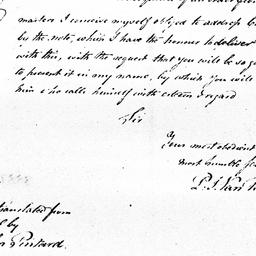 matters I conceive myself obliged to address
by the note, which I have the honour to deliver
with this, with the request that you will be so
to present it in my name, by which you will
him who calls himself with esteem & regard
Sir
Your most obedient
most humble
P. J. Van
translated from
by
Pintard.